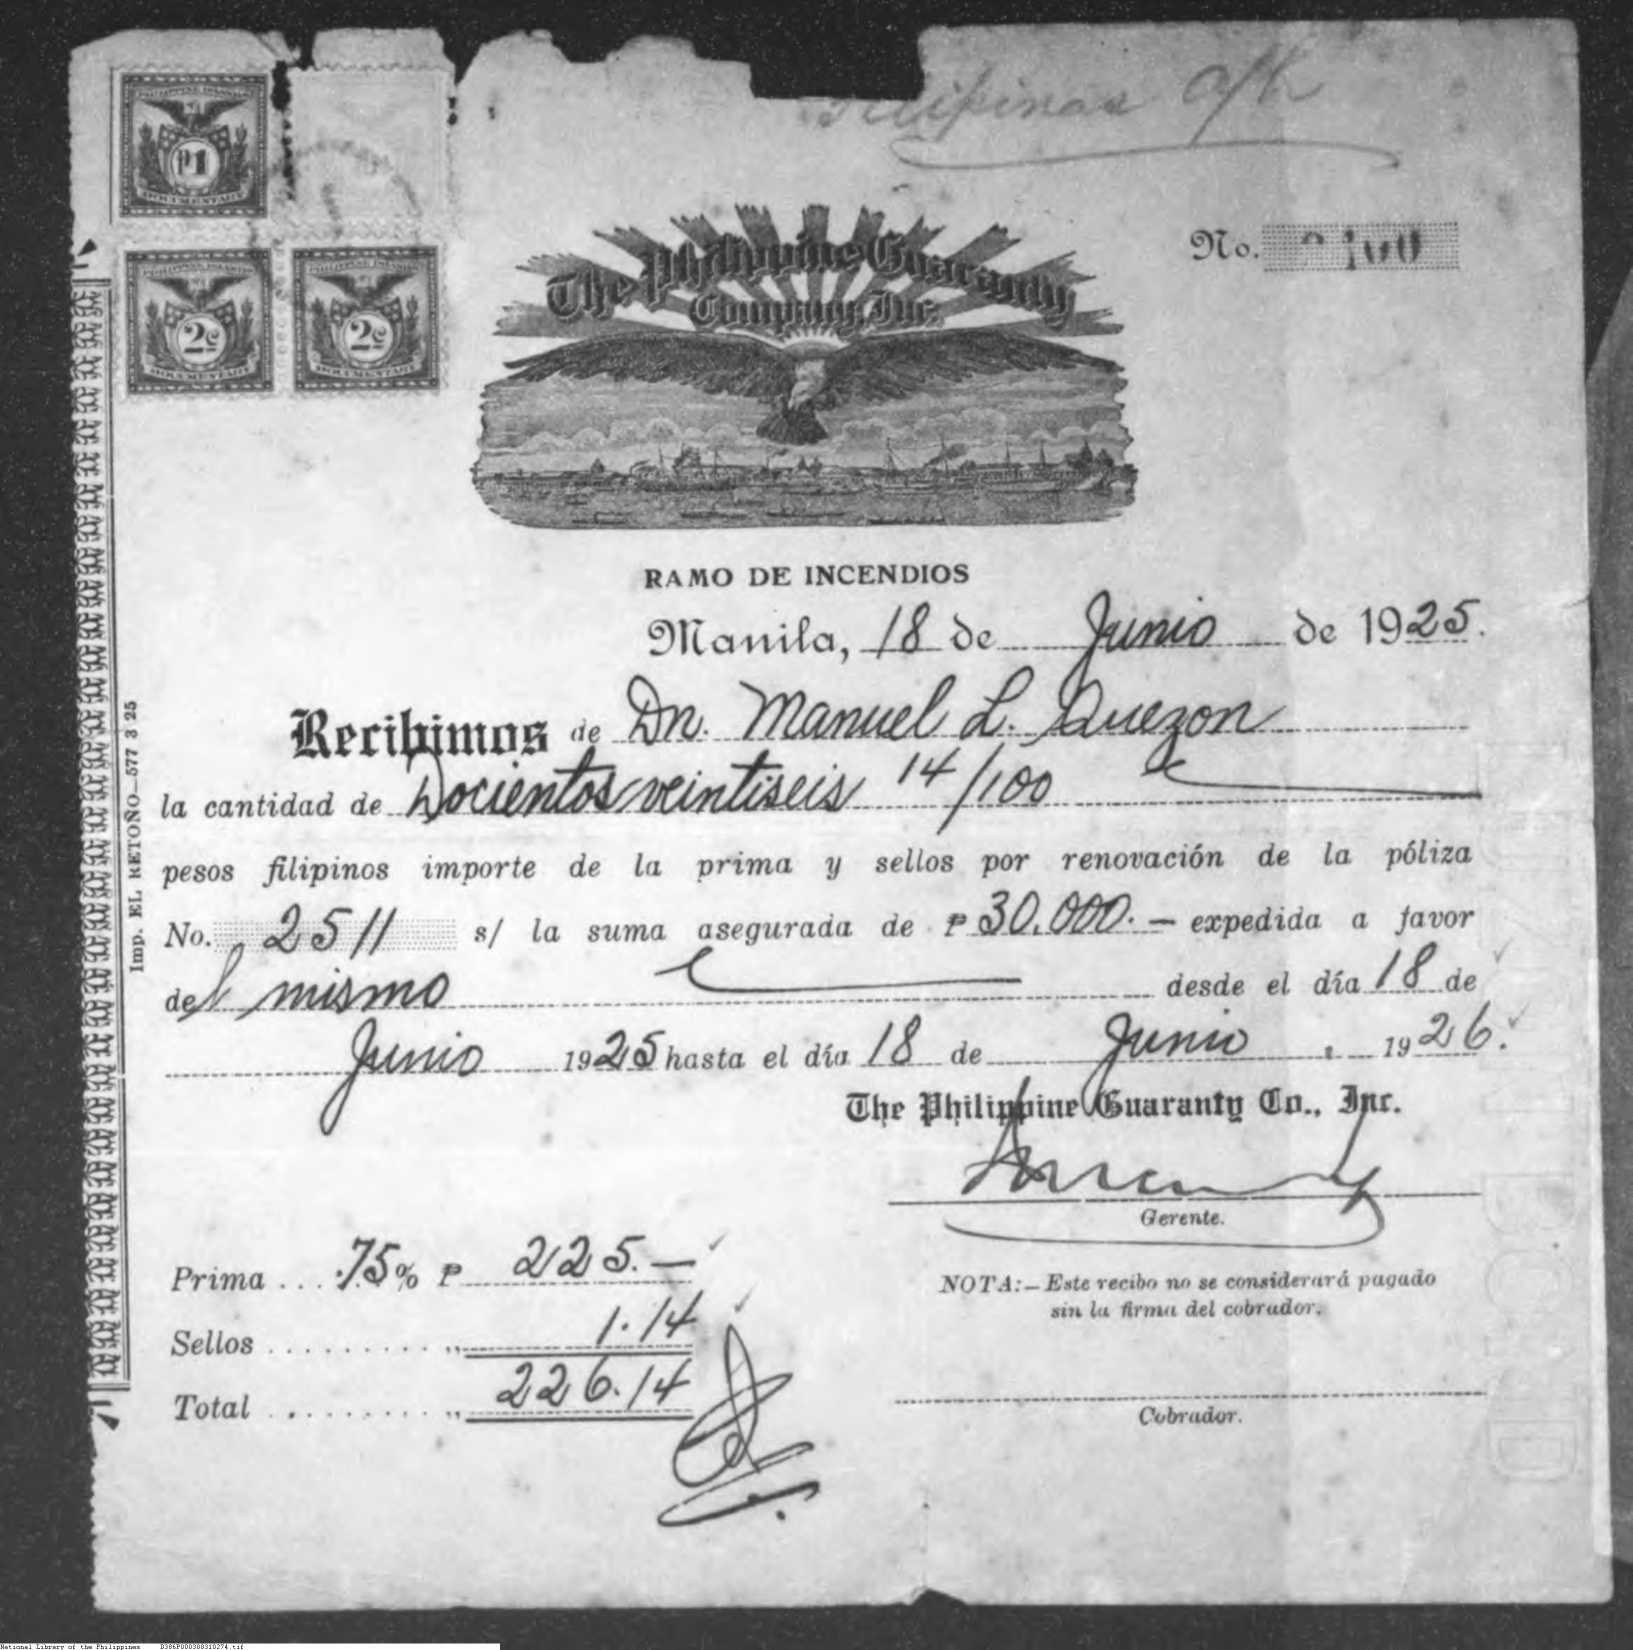 Filipinas a/h
PHILIPPINE ISLANDS
₱1
DOCUMENTARY
PHILIPPINE ISLANDS
2c
DOCUMENTARY
PHILIPPINE ISLANDS
2c
DOCUMENTARY
The Philippine Guaranty
Company, Inc.
No.
RAMO DE INCENDIOS
Manila, 18 de Junio de 1925.
Recibimos de Dn. Manuel L. Quezon
la cantidad de Docientos veintiseis 14/100
pesos filipinos importe de la prima y sellos por renovación de la póliza
No. 2511 s/ la suma asegurada de ₱ 30.000.— expedida a favor
del mismo desde el día 18 de
Junio 1925 hasta el día 18 de Junio, 1926.
The Philippine Guaranty Co., Inc.
Gerente.
Prima ... .75% ₱ 225.—
Sellos .......... „ 1.14
Total .......... „ 226.14
NOTA:—Este recibo no se considerará pagado
sin la firma del cobrador.
Cobrador.
Imp. EL RETOÑO—577 3 25
National Library of the Philippines D386P000308310274.tif